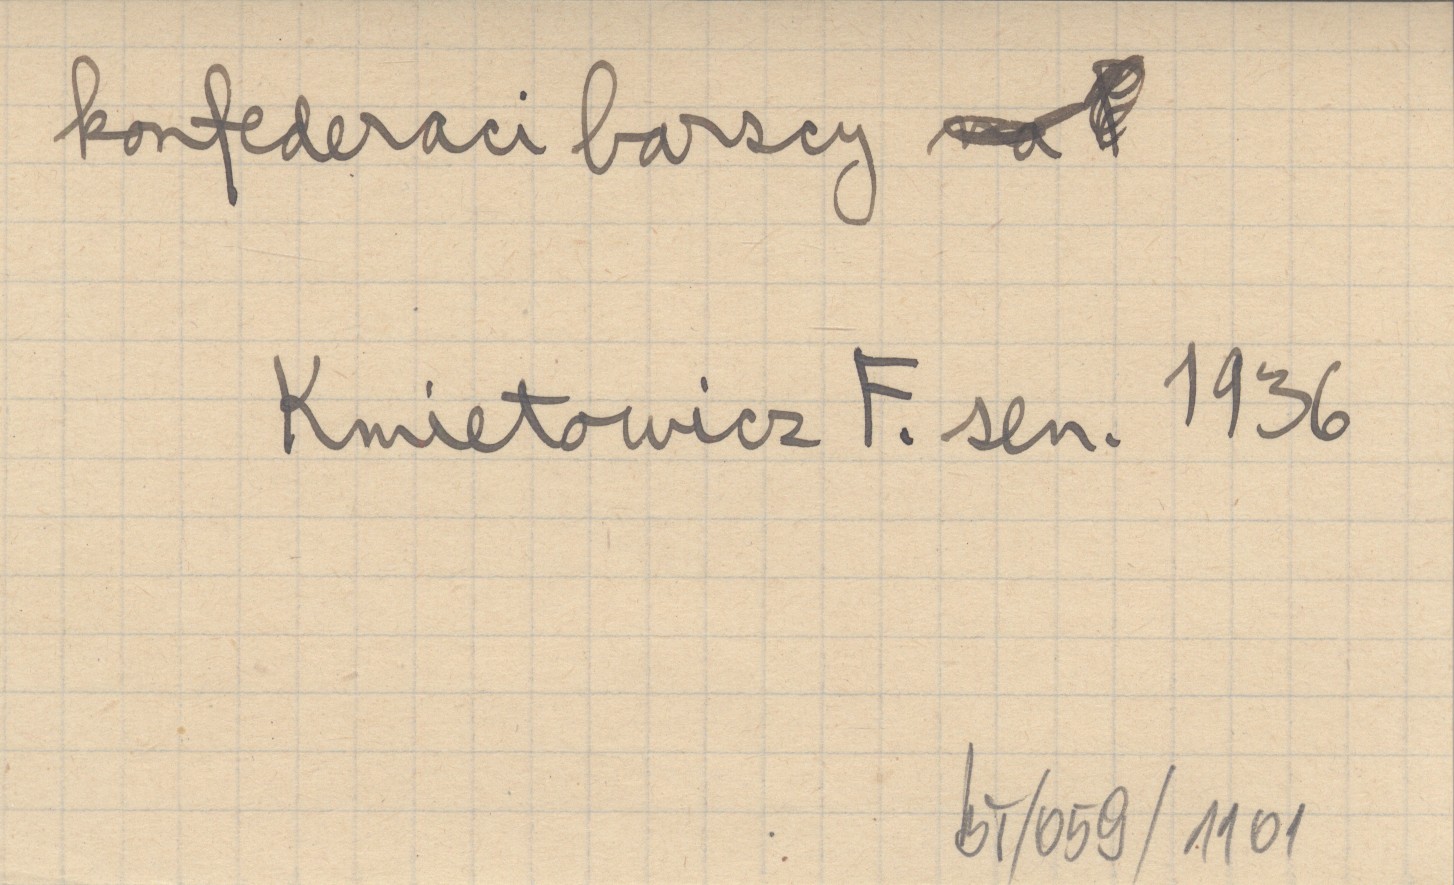 konfederaci barscy
Kmietowicz F. sen. 1936
/059/1101